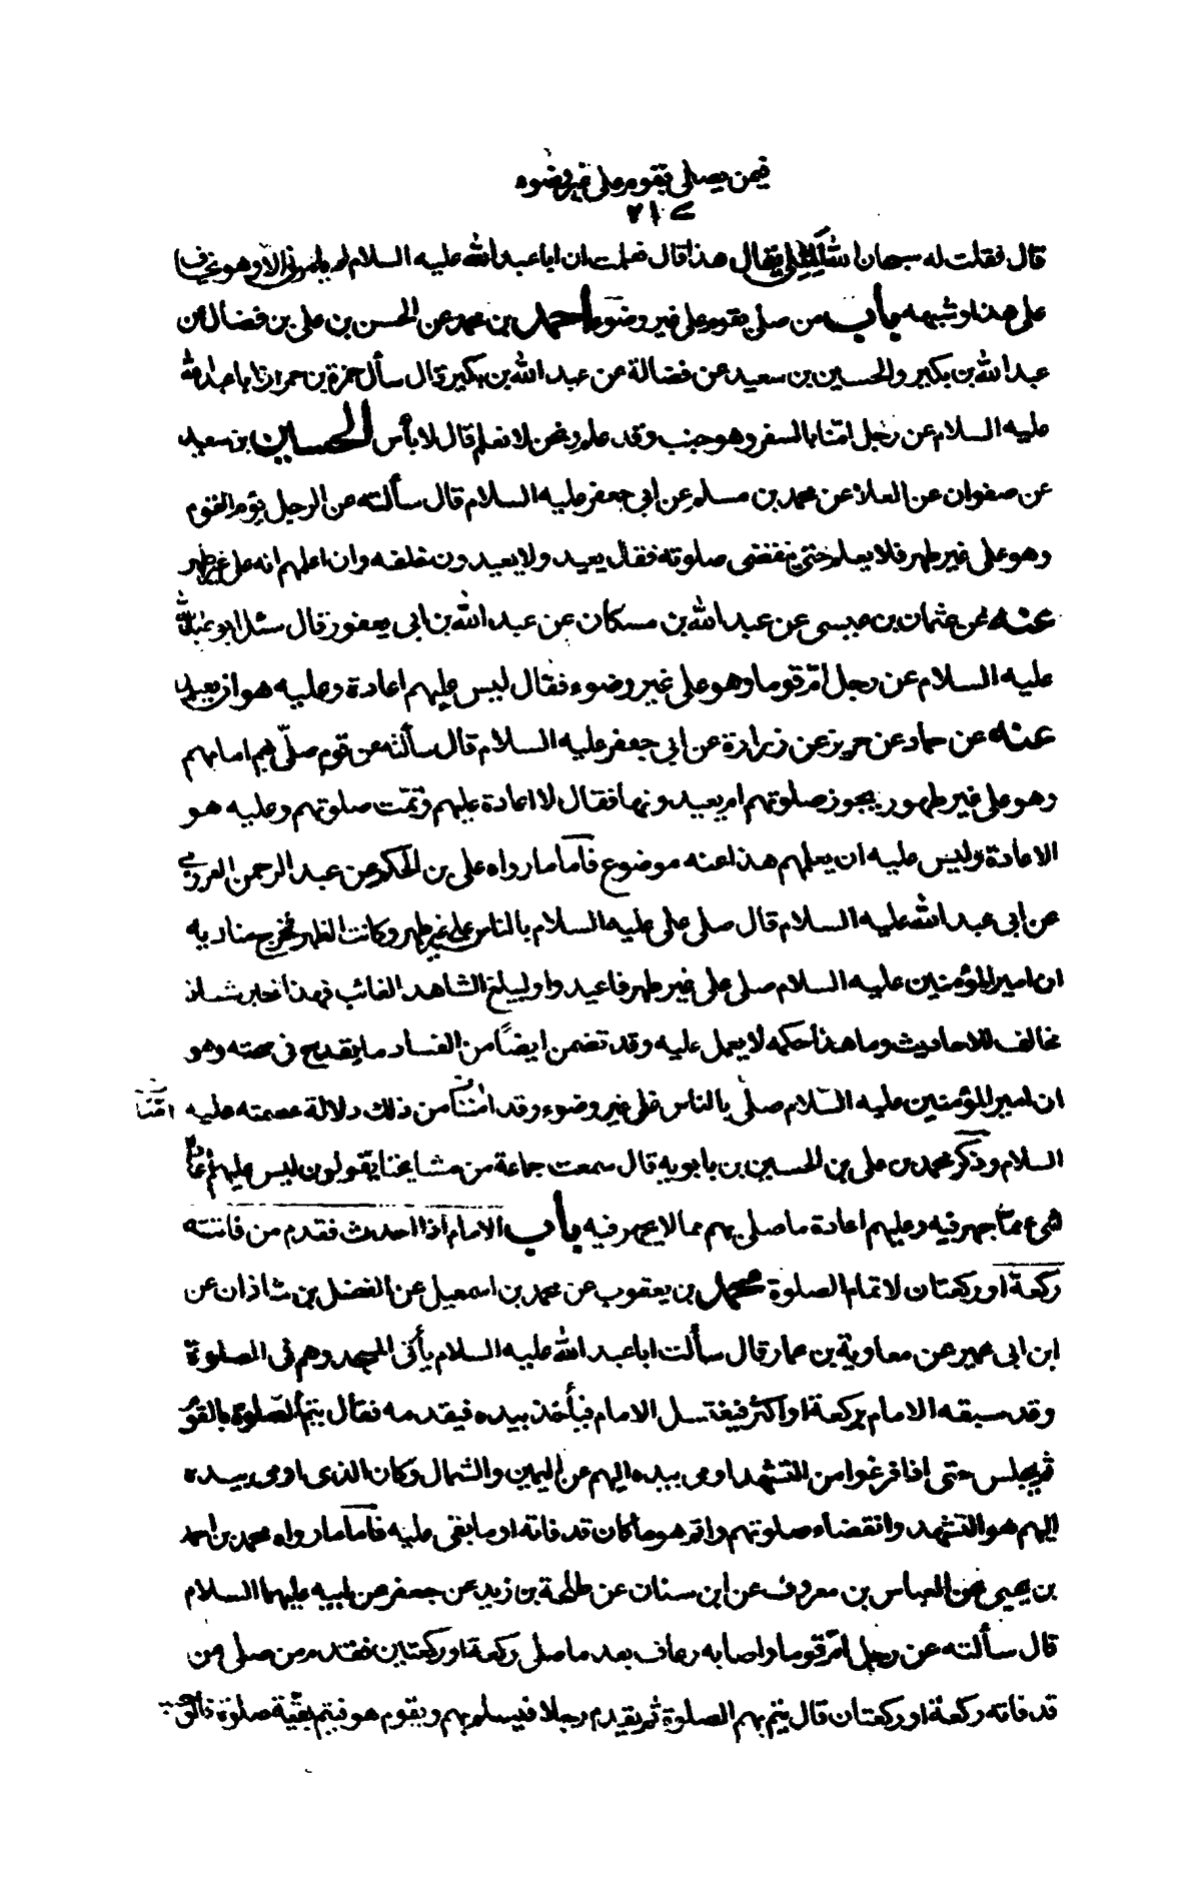 فيمن يصلى بقوم على غير وضوء
٢١٤
قال فقلت له سبحان الله هذا قال فعلمت ان ابا عبد الله عليه السلام لم يامرنى الا وهو
على هذا وشبهه باب من صلى بقوم على غير وضوء احمد بن محمد عن الحسن بن على بن فضال عن
عبد الله بن بكير والحسين بن سعيد عن فضالة عن عبد الله بن بكير قال سأل حمزة بن حمران ابا عبد الله
عليه السلام عن رجل امنا بالسفر وهو جنب وقد علم ونحن لا نعلم قال لا بأس الحسين بن سعيد
عن صفوان عن العلا عن محمد بن مسلم عن ابى جعفر عليه السلام قال سألته عن الرجل يؤم القوم
وهو على غير طهر فلا يعلم حتى تنقضى صلوته فقال يعيد ولا يعيد من خلفه وان اعلمهم انه على غير طهر
عنه عن عثمان بن عيسى عن عبد الله بن مسكان عن عبد الله بن ابى يعفور قال سئل ابو عبد الله
عليه السلام عن رجل امّ قوما وهو على غير وضوء فقال ليس عليهم اعادة وعليه هو ان يعيد
عنه عن حماد عن حريز عن زرارة عن ابى جعفر عليه السلام قال سألته عن قوم صلّى بهم امامهم
وهو على غير طهور يجوز صلوتهم ام يعيدونها فقال لا اعادة عليهم وتمّت صلوتهم وعليه هو
الاعادة وليس عليه ان يعلمهم هذا عنه موضوع فاما ما رواه على بن الحكم عن عبد الرحمن العرزمى
عن ابى عبد الله عليه السلام قال صلى على عليه السلام بالناس على غير طهر وكانت الظهر فخرج مناديه
ان امير المؤمنين عليه السلام صلى على غير طهر فاعيدوا وليبلغ الشاهد الغائب فهذا خبر شاذ
مخالف للاحاديث وما هذا حكمه لا يعمل عليه وقد تضمن ايضاً من الفساد ما يقدح فى صحته وهو
ان امير المؤمنين عليه السّلام صلى بالناس على غير وضوء وقد امننا من ذلك دلالة عصمته عليه امّننا
السلام وذكر محمد بن على بن الحسين بن بابويه قال سمعت جماعة من مشايخنا يقولون ليس عليهم اعادة
شىء مما جهر فيه وعليهم اعادة ما صلى بهم مما لا يجهر فيه باب الامام اذا احدث فقدم من فاتته
ركعة او ركعتان لاتمام الصلوة محمد بن يعقوب عن محمد بن اسمعيل عن الفضل بن شاذان عن
ابن ابى عمير عن معاوية بن عمار قال سألت ابا عبد الله عليه السلام يأتى المسجد وهم فى الصلوة
وقد سبقه الامام بركعة او اكثر فيعتل الامام فيأخذ بيده فيقدمه فقال يتم الصّلوة بالقوم
ثم يجلس حتى اذا فرغوا من التشهد اومى بيده اليهم عن اليمين والشمال وكان الذى اومى بيده
اليهم هو التشهد وانقضاء صلوتهم واتم هو ما كان قد فاته او ما بقى عليه فاما ما رواه محمد بن احمد
بن يحيى عن العباس بن معروف عن ابن سنان عن طلحة بن زيد عن جعفر عن ابيه عليهما السلام
قال سألته عن رجل امّ قوما واصابه رعاف بعد ما صلى ركعة او ركعتين فقدم من صلى من
قد فاته ركعة او ركعتان قال يتم بهم الصلوة ثم يقدم رجلا فيسلم بهم ويقوم هو فيتم بقيّة صلوته